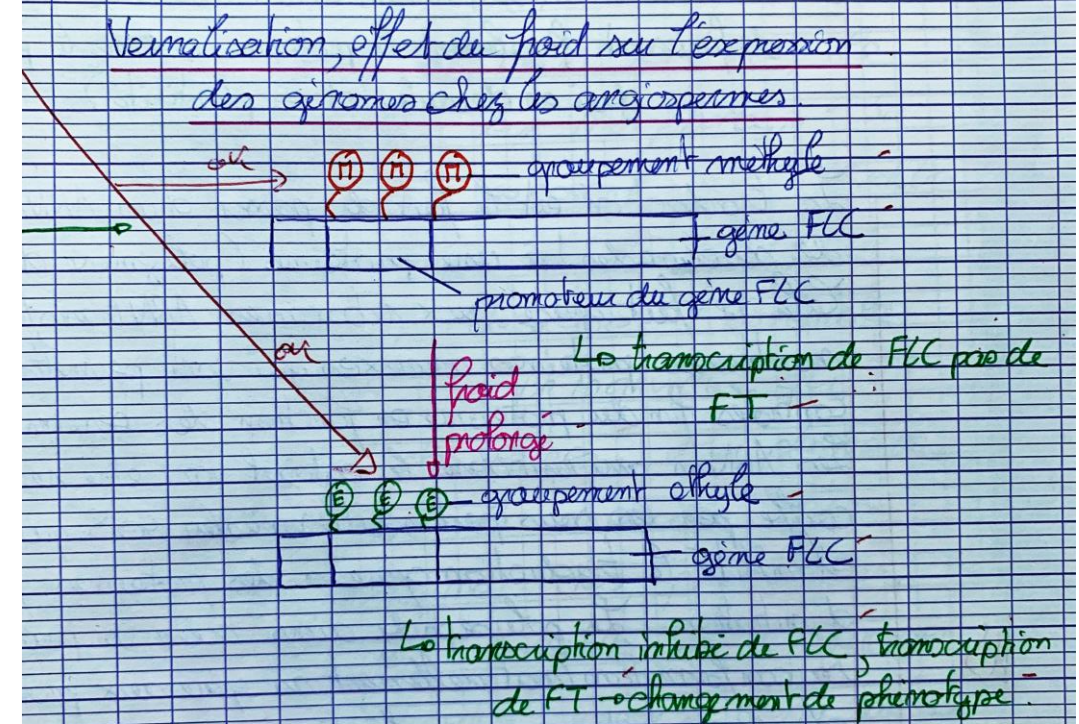 Vernalisation, effet du froid sur l'expression
des génomes chez les angiospermes.
ou
M M M groupement méthyle
gène FLC
promoteur du gène FLC
ou
froid
prolongé
↳ transcription de FLC pas de
FT
E E E groupement éthyle
gène FLC
↳ transcription inhibé de FLC, transcription
de FT → changement de phénotype.